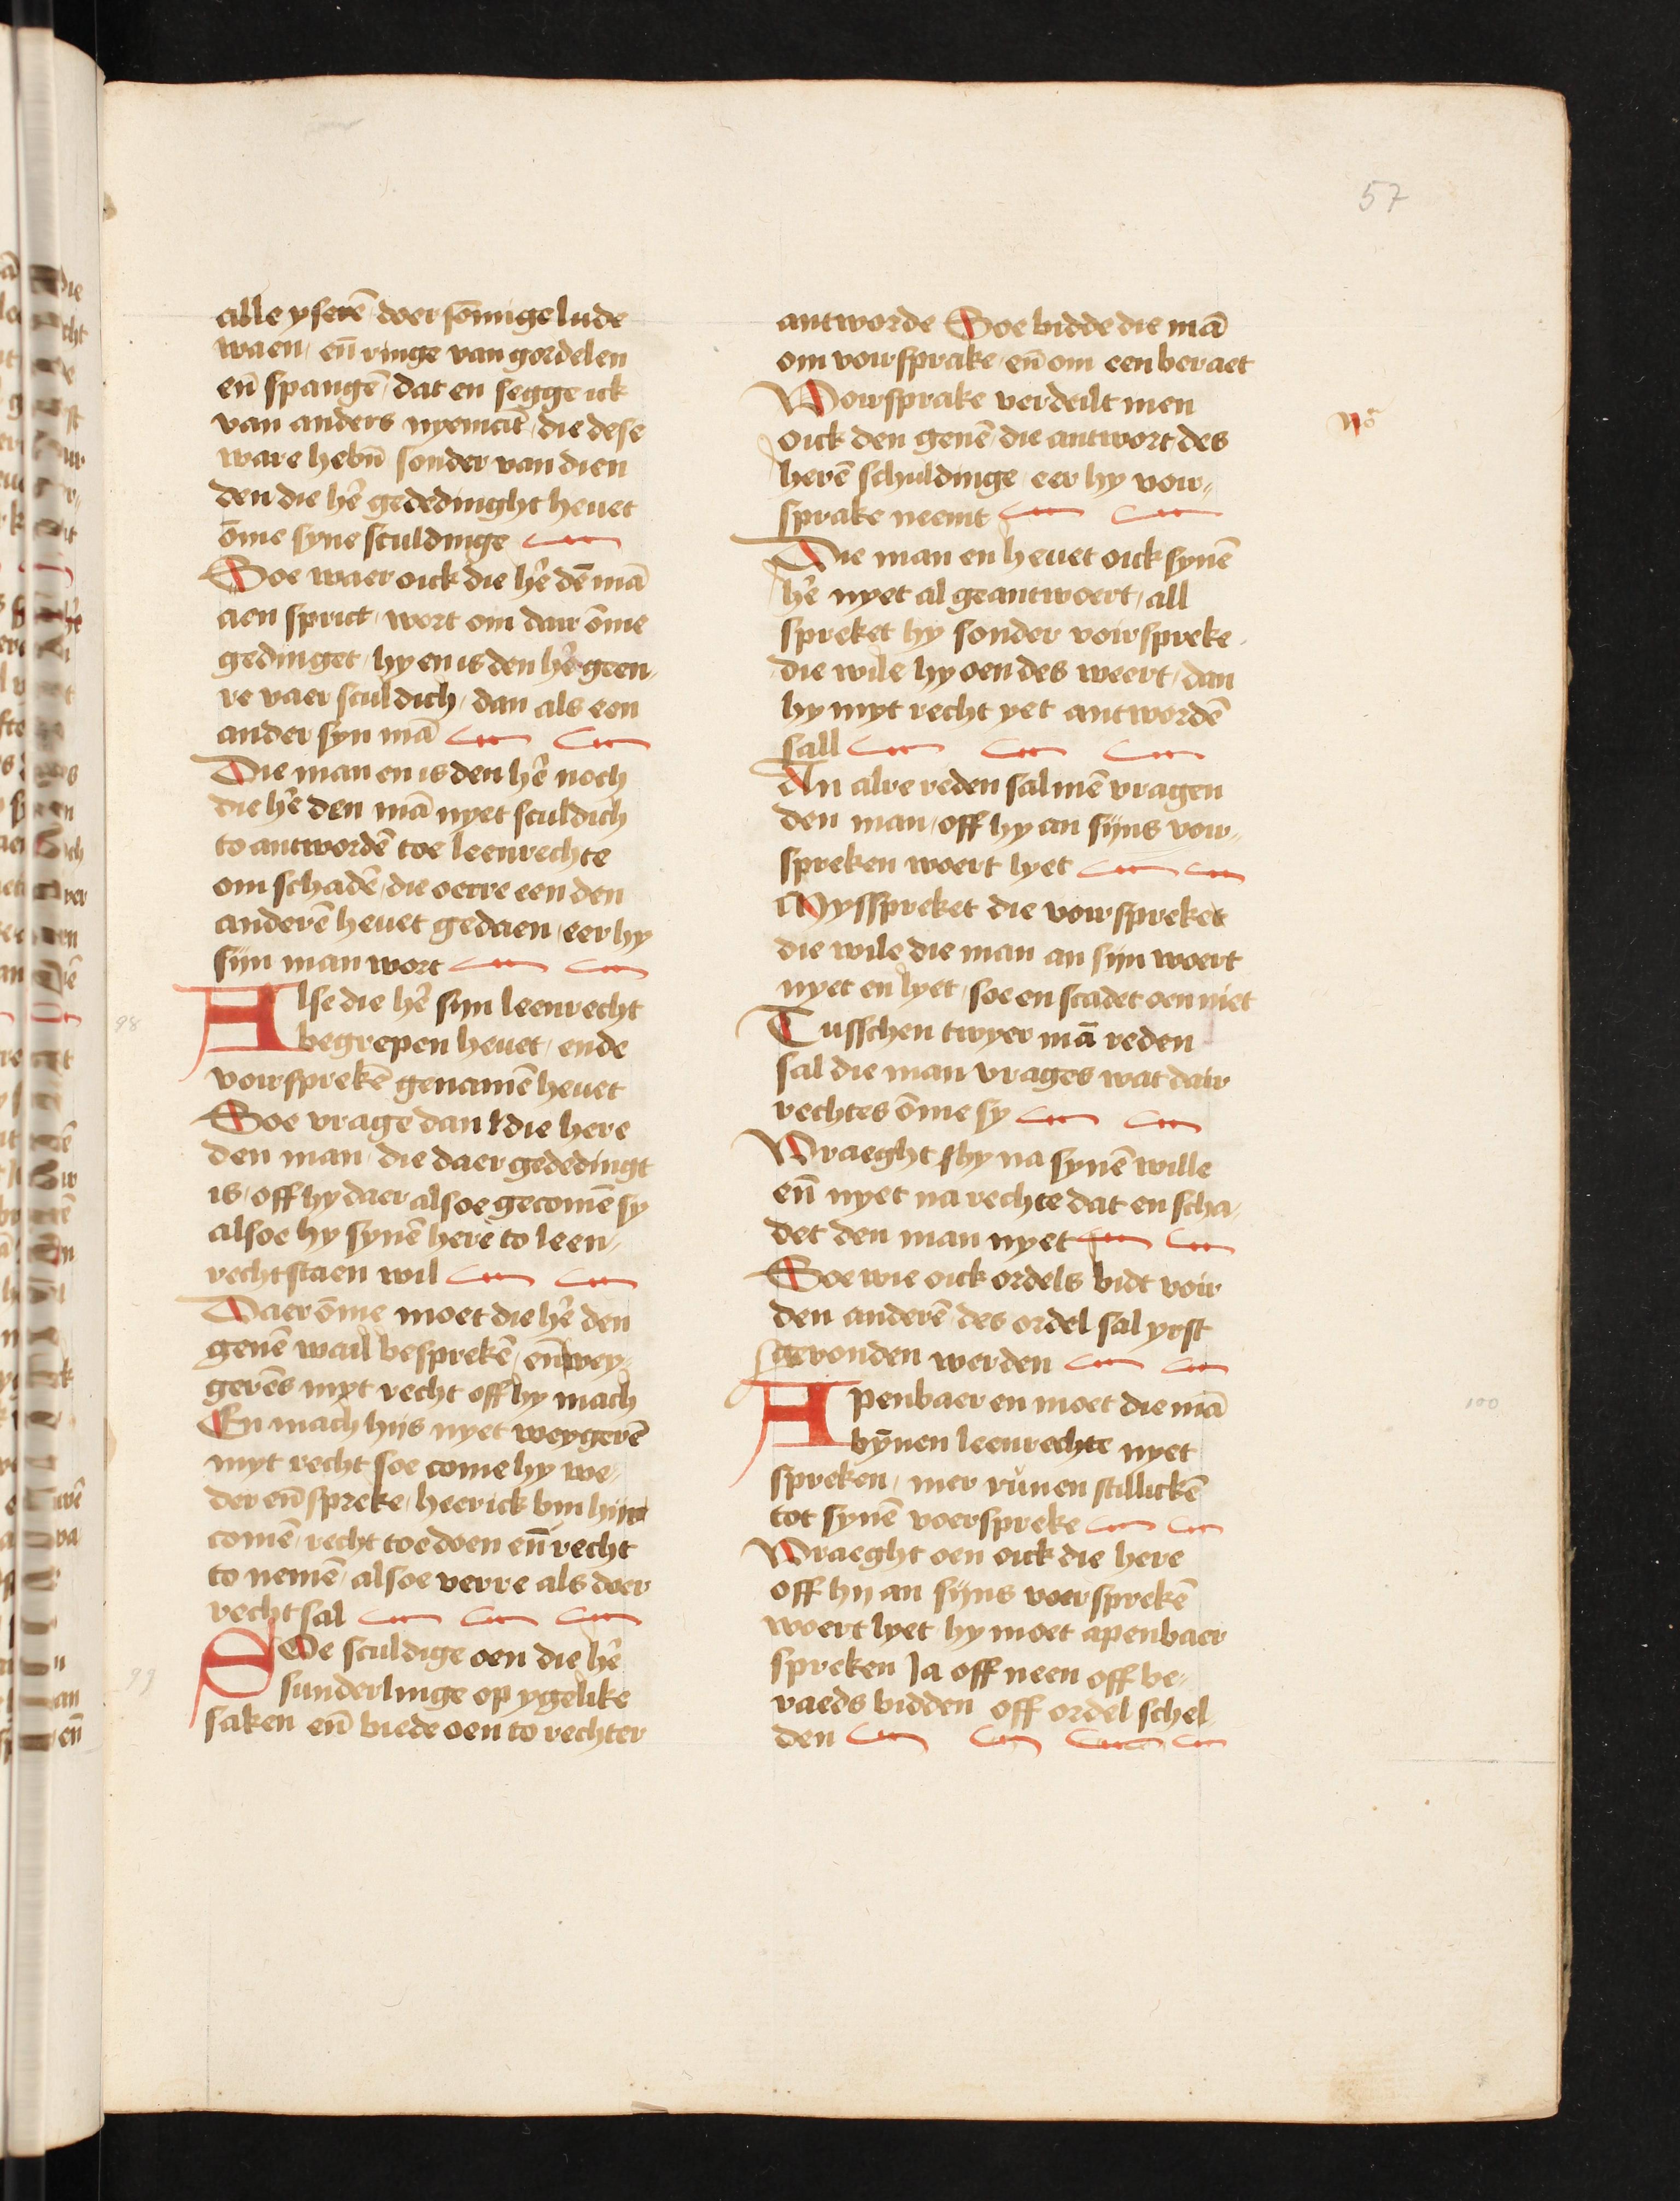 57
alle yserē doer sōmige lude
waen / eñ ringe van gordelen
eñ spangē / dat en segge ick
van anders nyemāt / die dese
ware hebñ sonder van dien
den die hē gededinght heuet
ōme syne sculdinge
Soe waer oick die hē dē mā
aen sprict / wort om dair ōme
gedinget / hy en is den hē geen⸗
re vaer sculdich / dan als een
ander syn mā
Die man en is den hē noch
die hē den mā nyet sculdich
to antwordē toe leenrechte
om schadē / die oerre een den
anderē heuet gedaen / eer hy
sijn man wort
98
Alse die hē sijn leenrecht
begrepen heuet / ende
voirsprekē genamē heuet
Soe vrage dan die here
den man / die daer gededingt
is / off hy daer alsoe gecomē sy
alsoe hy synē here to leen⸗
recht staen wil
Daer ōme moet die hē den
genē wail besprekē / eñ wey⸗
gerēs myt recht off hy mach
En mach hijs nyet weygerē
myt recht soe come hy we⸗
der eñ spreke / heer ick bin hijr
comē / recht toe doen eñ recht
to nemē / alsoe verre als doer
recht sal
99
SOe sculdige oen die hē
sunderlinge op ygelike
saken eñ biede oen to rechter
antworde Soe bidde die mā
om voirsprake / eñ om een beraet
Voirsprake verdeilt men
oick den genē / die antwort des
herē schuldinge / eer hy voir⸗
sprake neemt
No
Die man en heuet oick synē
hē nyet al geantwoert / all
spreket hy sonder voirspreke
die wile hy oen des weert / dan
hy myt recht yet antwordē
sall
An alre reden salmē vragen
den man / off hy an sijns voir⸗
spreken woert lyet
Mysspreket die voirspreket
die wile die man an sijn woert
nyet en lyet / soe en scadet oen niet
Tusschen twyer mā reden
sal die man vrages wat dair
rechtes ōme sy
Vraeght hy na synē wille
eñ nyet na rechte dat en scha⸗
det den man nyet
Soe wie oick ordels bidt voir
den anderē / des ordel sal yrst
gevonden werden
100
Apenbaer en moet die mā
bȳnen leenrechte nyet
spreken / mer rūnen stillickē
tot synē voerspreke
Vraeght oen oick die here
off hij an sijns voersprekē
woert lyet / hy moet apenbaer
spreken Ja off neen off be⸗
raeds bidden off ordel schel
den